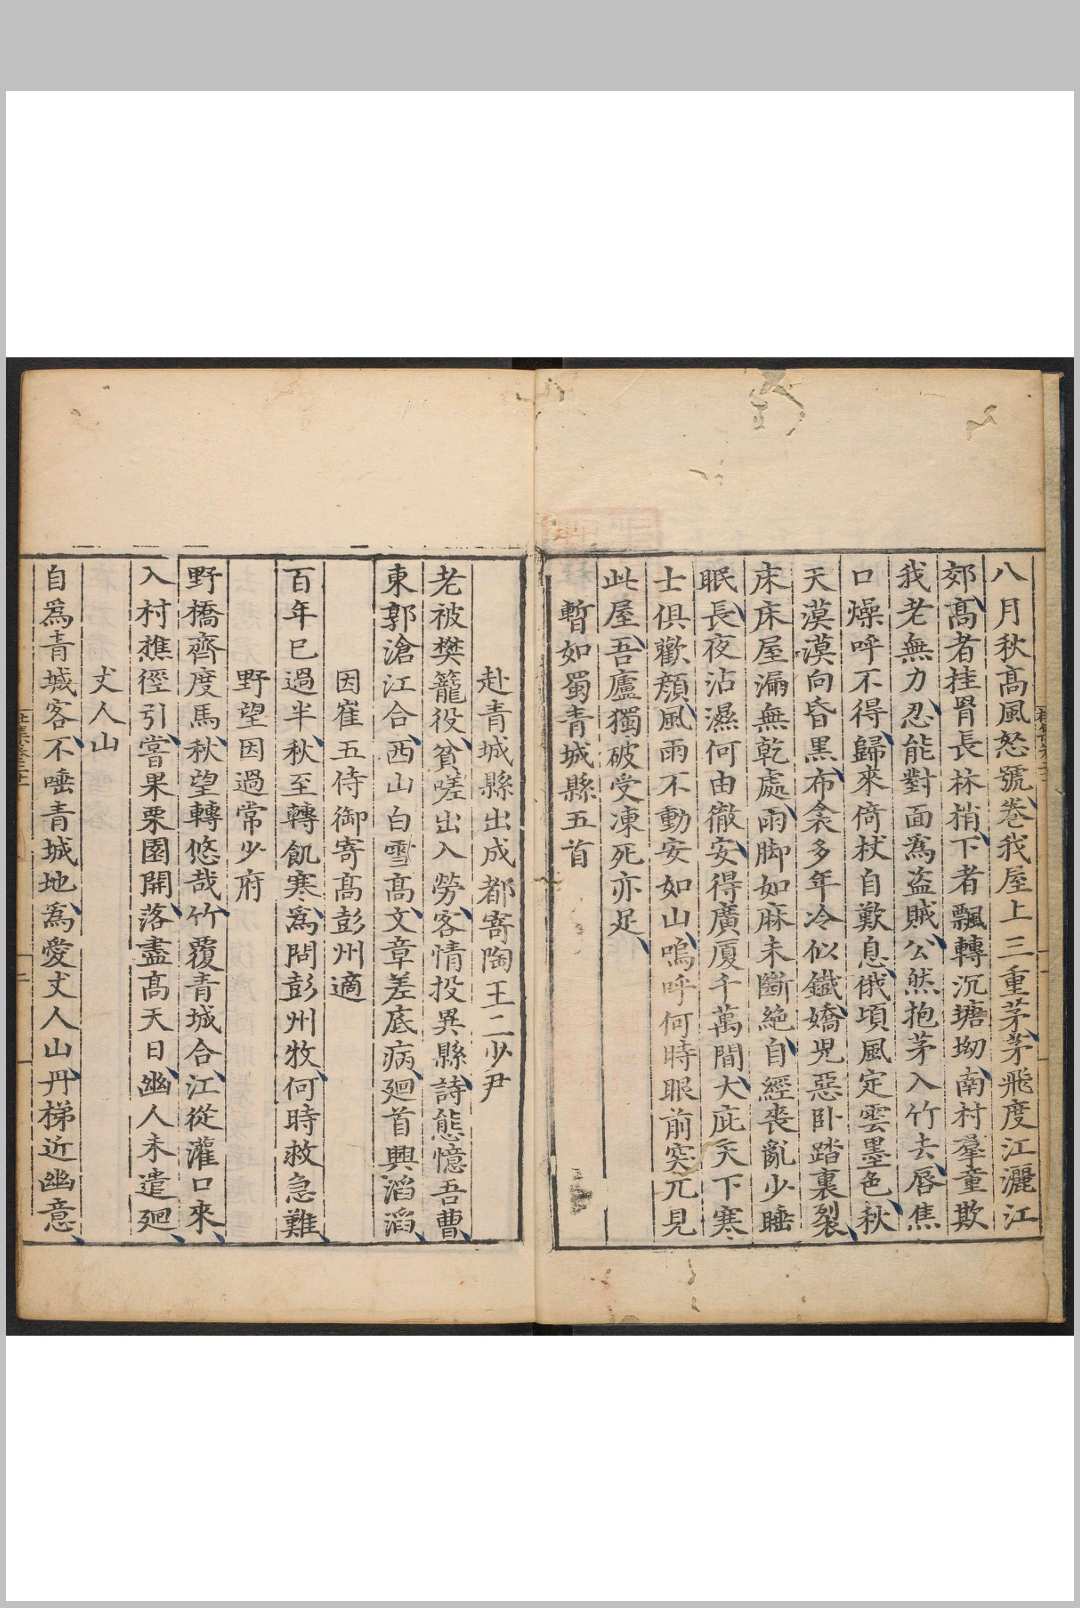 八月秋高風怒號卷我屋上三重茅茅飛度江灑江
郊髙者挂罥長林梢下者飄轉沉塘坳南村羣童欺
我老無力忍能對面爲盗賊公然抱茅入竹去唇焦
口燥呼不得歸來倚杖自歎息俄頃風定雲墨色秋
天漠漠向昏黑布衾多年冷似鐵嬌児惡卧踏裏裂
床床屋漏無乾處雨脚如麻未斷絶自經丧亂少睡
眠長夜沾濕何由徹安得廣厦千萬間大庇天下寒
士俱歡顔風雨不動安如山嗚呼何時眼前突兀見
此屋吾廬獨破受凍死亦足
暫如蜀青城縣五首
赴青城縣出成都寄陶王二少尹
老被樊籠役貧嗟出入勞客情投異縣詩態憶吾曹
東郭滄江合西山白雪髙文章差底病廻首興滔滔
因崔五侍御寄髙彭州適
百年已過半秋至轉飢寒爲問彭州牧何時救急難
野望因過常少府
野橋齊度馬秋望轉悠哉竹覆青城合江從灌口來
入村樵徑引嘗果栗園開落盡髙天日幽人未遣廻
丈人山
自爲青城客不唾青城地爲愛丈人山丹梯近幽意